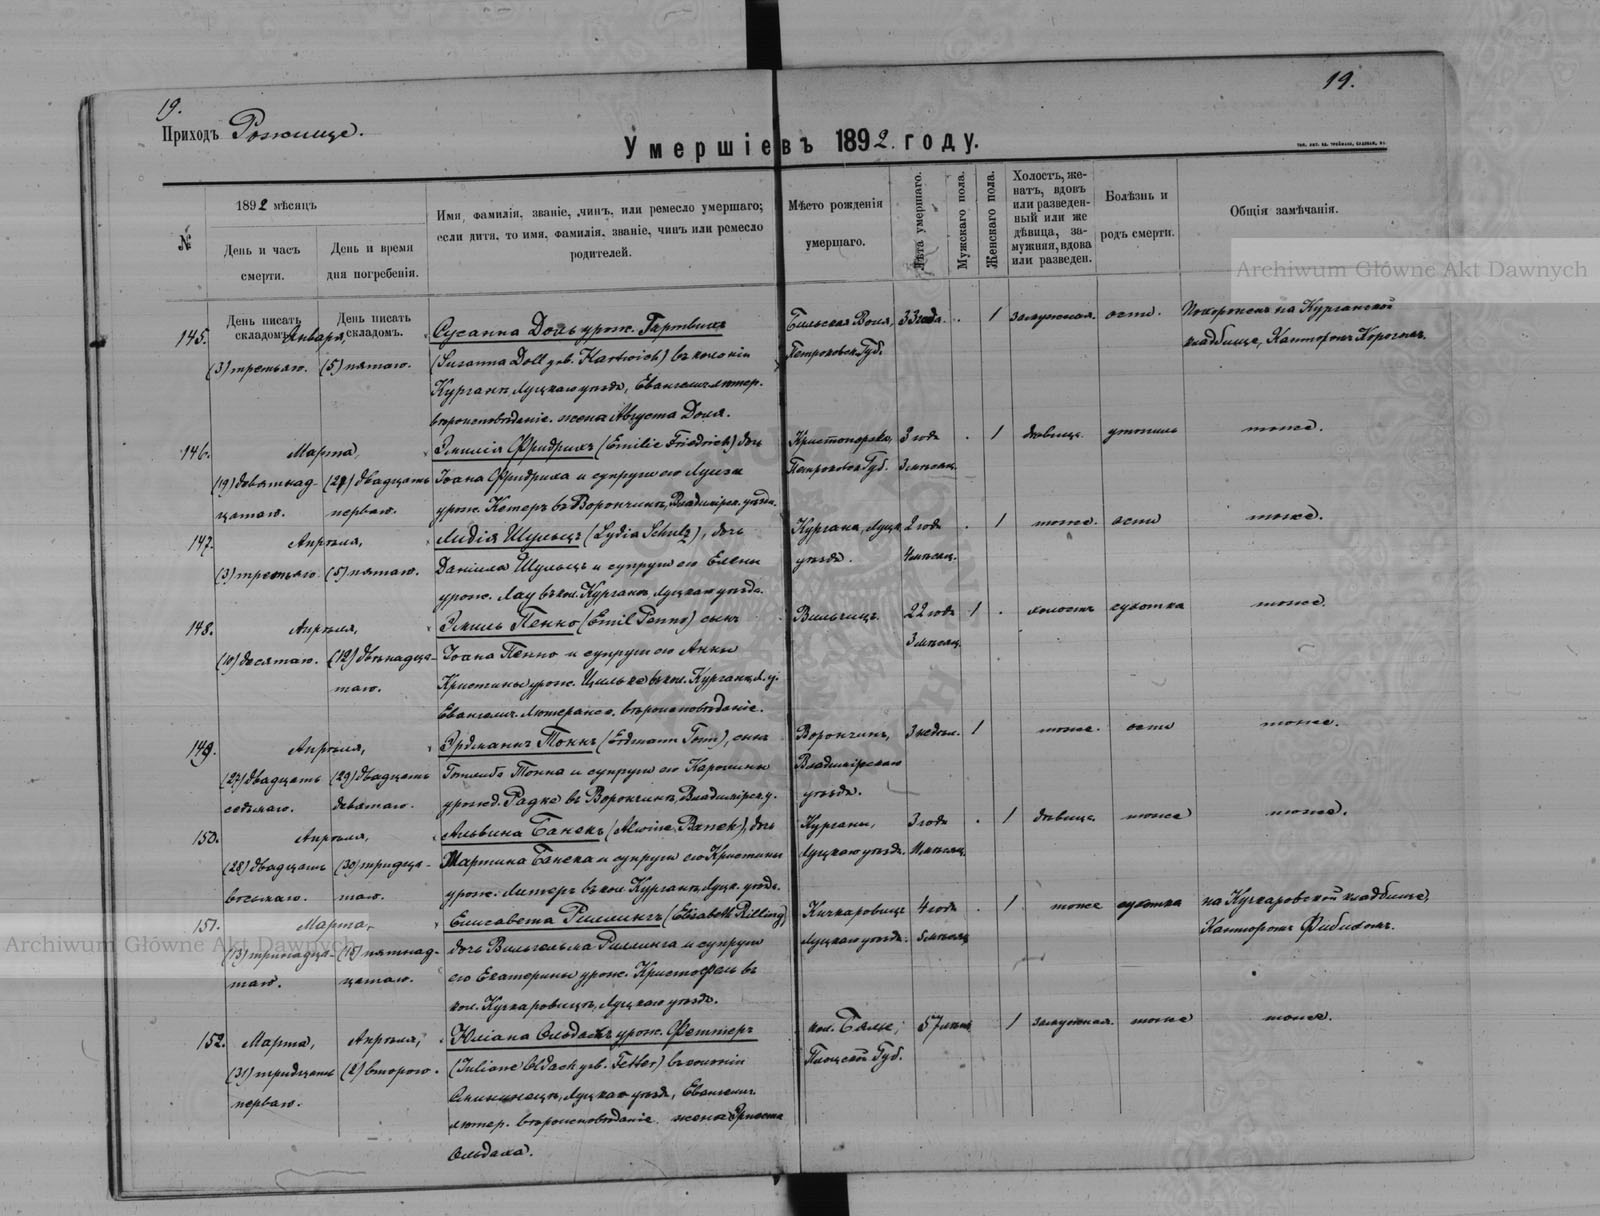 19.
19.
Приходъ Рожище.
Умершіе въ 1892. году.
№
1892 мѣсяцъ
День и часъ смерти.
День и время дня погребенія.
Имя, фамилія, званіе, чинъ, или ремесло умершаго;
если дитя, то имя, фамилія, званіе, чинъ или ремесло
родителей.
Мѣсто рожденія
умершаго.
Лѣта умершаго.
Мужскаго пола.
Женскаго пола.
Холостъ, же-
натъ, вдовъ
или разведен-
ный или же
дѣвица, за-
мужняя, вдова
или разведен.
Болѣзнь и
родъ смерти.
Общія замѣчанія.
Archiwum Główne Akt Dawnych
День писать складомъ.
День писать складомъ.
145.
Января,
(3) третьяго. (5) пятаго.
Сусанна Доль урож. Гартвихъ
(Susanna Doll geb. Hartwich) въ колоніи
Курганъ, Луцкаго уѣзда, Евангелич. лютер.
вѣроисповѣданіе. жена Августа Доля.
Петроковск. Губ.
33 года.
. 1
замужняя.
Похороненъ на Курганской
кладбищѣ, Канторомъ
146.
Марта,
(19) девятнад-
цатаго.
(21) двадцать
перваго.
Эмилія Фридрихъ (Emilie Friedrich) дочь
Іоана Фридриха и супруги его Луизы
урож. въ Ворончинъ, Владимірск. уѣзда.
Петроковск. Губ.
3 года
3 мѣсяц.
. 1
дѣвица
тоже.
147.
Апрѣля,
(3) третьяго. (5) пятаго.
Лидія Шульцъ (Lydia Schulz), дочь
Даніила Шульцъ и супруги его Елены
урож. Лау въ кол. Курганъ, Луцкаго уѣзда.
Кургана, Луцк.
уѣзда.
2 года
4 мѣсяц.
. 1
тоже.
оспа
тоже.
148.
Апрѣля,
(10) десятаго.
(12) двѣнадца-
таго.
Эмиль Пенно (Emil Penno) сынъ
Іоана Пенно и супруги его Анны
Кристины урож. Цильке въ кол. Курганъ, Л. у.
Евангелич. Лютеранс. вѣроисповѣданіе.
22 года
3 мѣсяц.
1 .
холостъ
сухотка
тоже.
149.
Апрѣля,
(27) двадцать
седьмаго.
(29) двадцать
девятаго.
Эрдманъ Тоннъ (Erdmann Tonn), сынъ
Готлиба Тонна и супруги его Каролины
урожд. Радке въ Ворончинъ, Владимірск. у.
Ворончинъ,
Владимірскаго
уѣзда.
3 недѣл.
1
тоже.
оспа
тоже.
150.
Апрѣля,
(28) двадцать
восьмаго.
(30) тридца-
таго.
Альвина Банекъ (Alwine Banek), дочь
Мартина Банека и супруги его Кристины
урож. Литеръ въ кол. Курганъ, Луцк. уѣзд.
Курганы,
Луцкаго уѣзда.
3 года
11 мѣсяц.
. 1
дѣвица
тоже
тоже.
151.
Марта,
(13) тринадца-
таго.
(15) пятнад-
цатаго.
Елисавета Риллингъ (Elisabeth Rilling)
дочь Вильгельма Риллинга и супруги
его Екатерины урож. Кристофель въ
кол. Кучкаровцѣ, Луцкаго уѣзда.
Кичкаровцѣ
Луцкаго уѣзда.
4 года
5 мѣсяц
. 1
тоже
сухотка
на Кучкаровской кладбищѣ,
Канторомъ Фибихомъ.
Archiwum Główne Akt Dawnych
152.
Марта,
(31) тридцать
перваго.
Апрѣля,
(2) втораго.
Юліана Ольдахъ урож. Феттеръ
(Juliane Oldach geb. Fetter) въ колоніи
Луцкаго уѣзда, Евангелич.
лютер. вѣроисповѣданіе. жена Эрнеста
Ольдаха.
кол.
Плоцкой Губ.
57 лѣтъ
1
замужняя.
тоже
тоже.